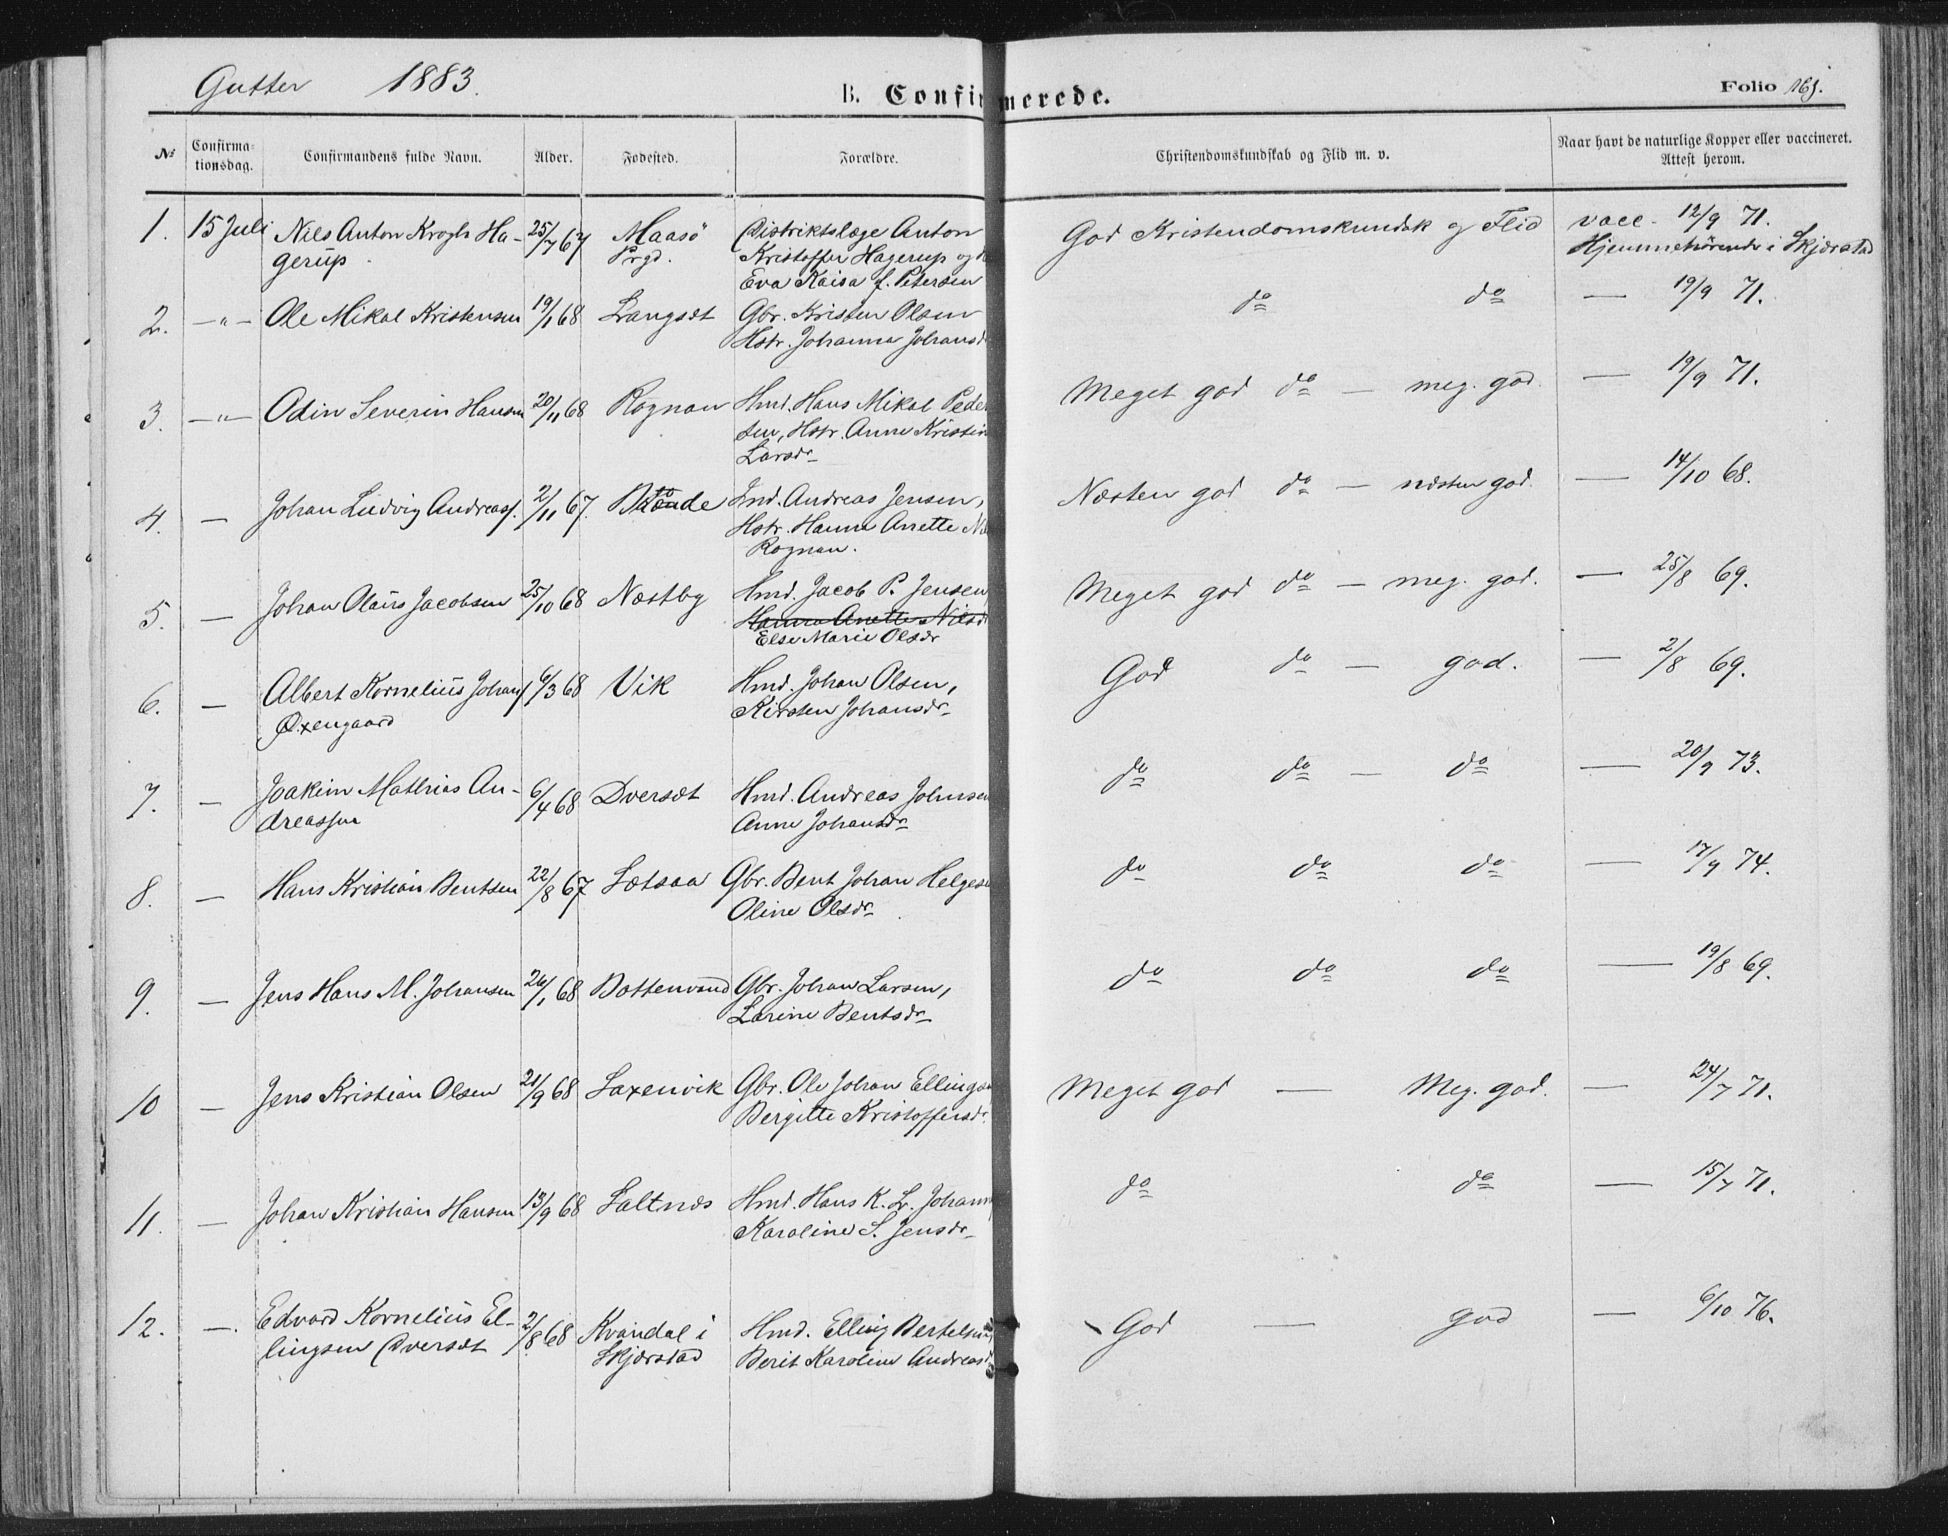 Gutter 1883.
B. Confirmerede.
Folio 161.
No
Confirma-
tionsdag.
Confirmandens fulde Navn.
Alder.
Fødested.
Forældre.
Christendomskundskab og Flid m. v.
Naar havt de naturlige Kopper eller vaccineret.
Attest herom.
1. 15 Juli Nils Anton Krogh Ha- 25/7 67 Maasö Distriktslæge Anton God Kristendomskundsk og Flid vacc. 12/9 71.
gerup. Prgd. Kristoffer Hagerup og Hjemmehörende i Skjerstad
Eva Kaisa f. Petersen
2. —"— Ole Mikal Kristensen 19/1 68 Langset Gbr. Kristen Olsen do do — 19/9 71.
Hstr. Johanna Johansd
3. —"— Odin Severin Hansen 20/11 68 Rognan Hmd. Hans Mikal Peder Meget god do — meg. god. — 19/9 71.
sen, Hstr. Anne Kristin
Larsdr
4. — Johan Ludvig Andreass. 2/11 67. Ind. Andreas Jensen, Næsten god do — næsten god. — 14/10 68.
Hstr. Hanna Anette
Rognan.
5. — Johan Olaüs Jacobsen 25/10 68 Næstby Hmd. Jacob P. Jensen Meget god do — meg. god. — 25/8 69.
Hanna Anette Nilsd
Else Marie Olsdr
6. — Albert Kornelius Johans 6/3 68 Vik Hmd. Johan Olsen, God do — god. — 2/8 69.
Øxengaard Kirsten Johansdr
7. — Joakim Mathias An- 6/4 68 Dverset Hmd. Andreas Johnsen do do — do — 20/9 73.
dreassen Anne Johansdr
8. — Hans Kristian Bentsen 22/8 67 Sætsaa Gbr. Bent Johan Helgese do do do — 17/9 74.
Oline Olsdr
9. — Jens Hans M. Johansen 26/1 68 Bottenvand Gbr. Johan Larsen, do do do — 19/8 69.
Larine Bentsdr
10 — Jens Kristian Olsen 21/9 68 Saxenvik Gbr. Ole Johan Ellings Meget god — Meg. god. — 24/7 71.
Bergitte Kristoffersdr.
11. — Johan Kristian Hansen 13/9 68 Saltnes Hmd. Hans K. L. Johann do do — 15/7 71.
Karoline S. Jensdr
12. —. Edvard Kornelius El- 2/8 68 Kvandal i Hmd. Elling Bertelsen God — god — 6/10 76.
lingsen Dverset Skjerstad Berit Karoline Andreasd